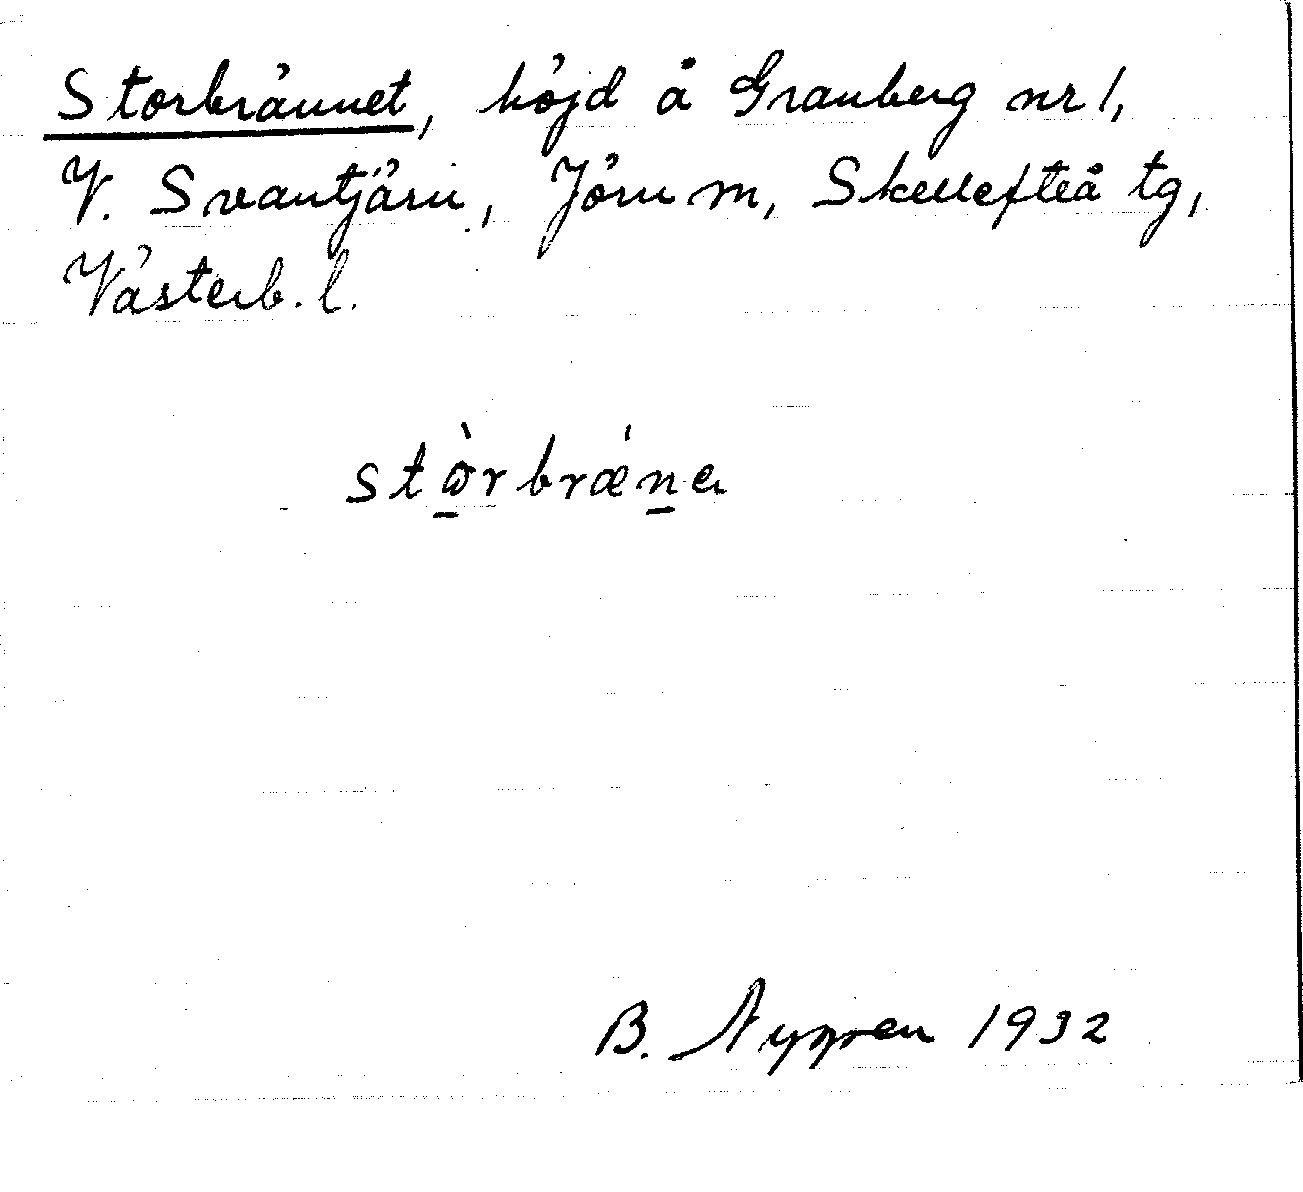 Storbrännet, höjd å Granberg nr 1,
V. Svantjärn, Jörn m, Skellefteå tg,
Västerb. l.
stὼ̱rbrǽn̲a
B. Nygren 1932